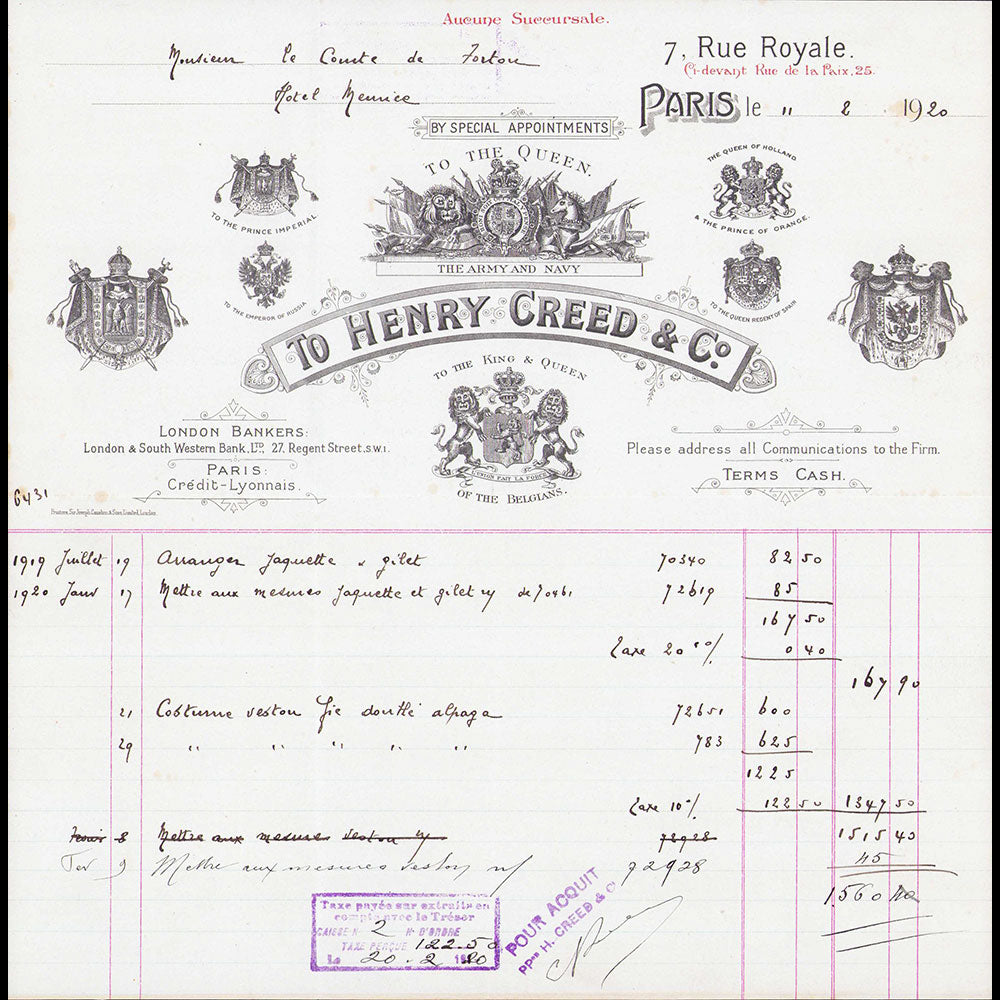 Aucune Succursale.
Monsieur le Comte de Forton
Hotel Meurice
7, Rue Royale.
Ci-devant Rue de la Paix, 25.
PARIS le 11 2 . 1920
BY SPECIAL APPOINTMENTS
TO THE QUEEN.
THE ARMY AND NAVY
TO THE PRINCE IMPERIAL
TO THE EMPEROR OF RUSSIA
THE QUEEN OF HOLLAND
& THE PRINCE OF ORANGE.
TO THE QUEEN REGENT OF SPAIN
TO HENRY CREED & Co.
TO THE KING & QUEEN
L'UNION FAIT LA FORCE
OF THE BELGIANS.
LONDON BANKERS:
London & South Western Bank, LTD., 27. Regent Street, S.W.1.
PARIS:
Crédit-Lyonnais.
Please address all Communications to the Firm.
TERMS CASH.
6431
Printers, Sir Joseph Causton & Sons Limited, London.
1919 Juillet 19 Arranger Jaquette & gilet 70340 82 50
1920 Janv 17 Mettre aux mesures Jaquette et gilet de 70461 72619 85
167 50
Taxe 20 % 0 40
167 90
21 Costume veston doublé alpaga 72651 600
29 " " " " " 783 625
1225
Taxe 10 % 122 50 1347 50
8 Mettre aux mesures veston 72928 1515 40
Fev 9 Mettre aux mesures veston 72928 45
1560 40
Taxe payée sur extraits en
compte avec le Trésor
CAISSE N 2 N° D'ORDRE
TAXE PERÇUE 122.50
Le 20.2 1920
POUR ACQUIT
PPon H. CREED & Co